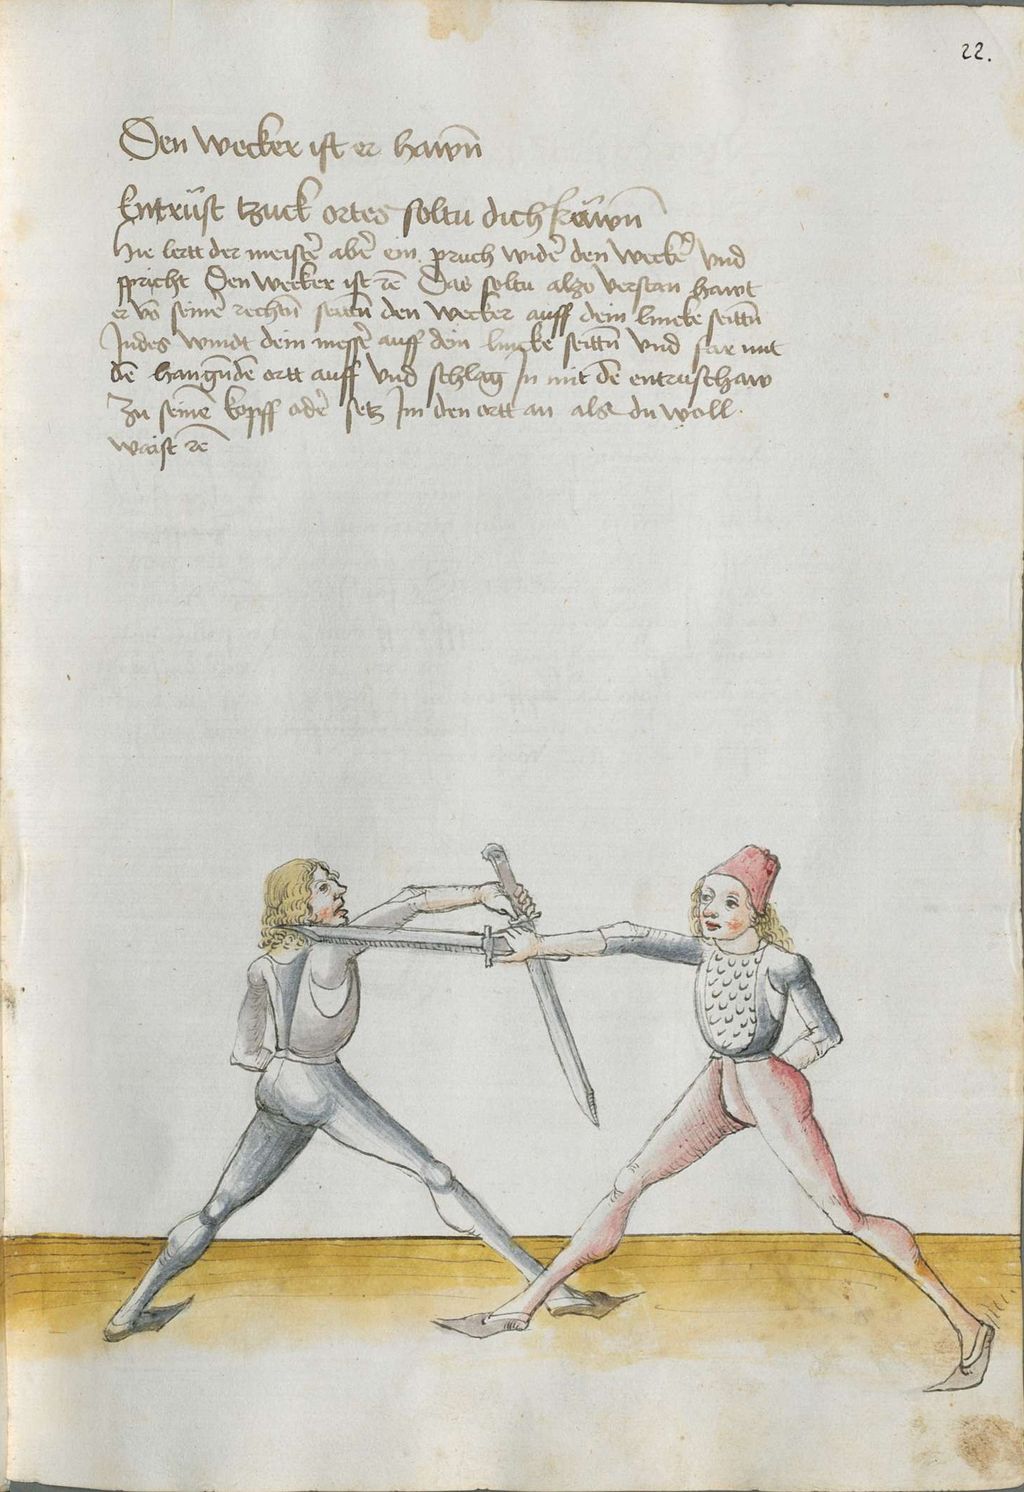 22.
Den wecker ist er hawn̄
Entrüst tzuck ortes soltu dich frawn̄
Hie lertt der meistr̄ abr̄ ein pruch widr̄ den weckr̄ vnd
spricht Den wecker ist rc̄ Das soltu alzo verstan hawt
er vō seinr̄ rechtn̄ seittn̄ den wecker auff dein lincke seittn̄
Indes windt dein messr̄ auff dein lincke seittn̄ vnd far mit
dē hangn̄dē ortt auff vnd schlag In mit dē entrüschaw
Zu seinē kopff odr̄ setz Im den ortt an als du woll
waist rc̄